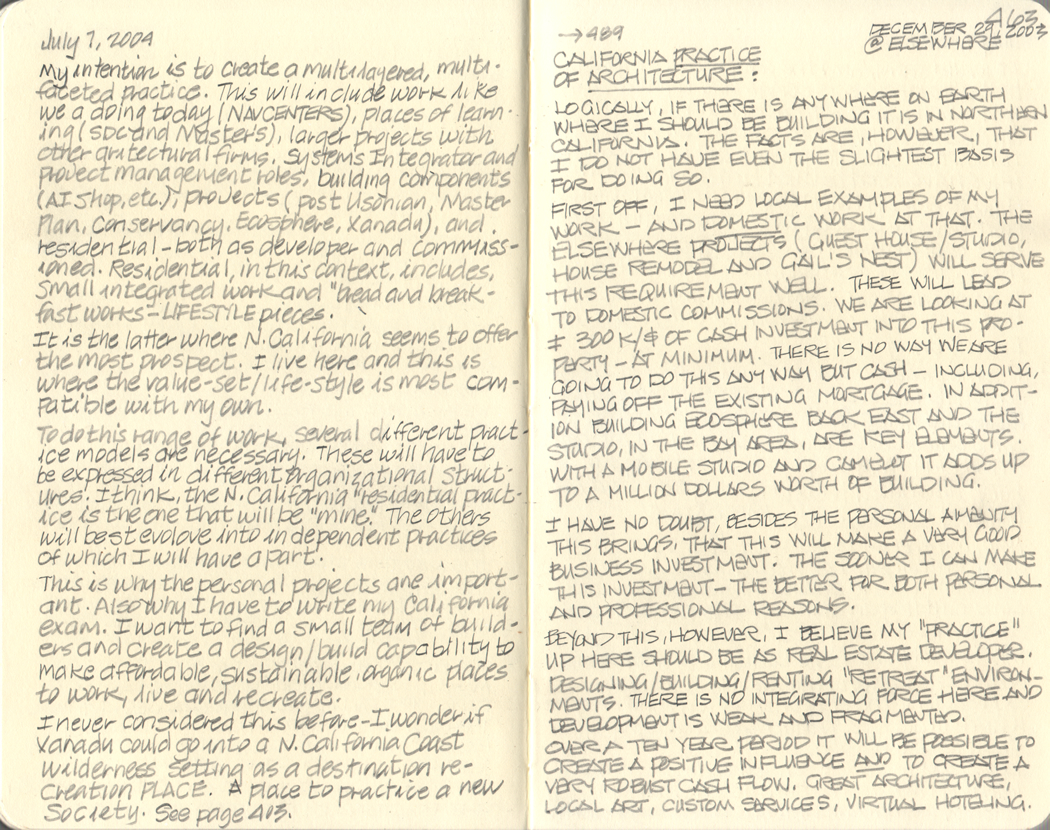 July 7, 2004
My intention is to create a multilayered, multi-
faceted practice. This will include work like
we a doing today (NAVCENTERS), places of learn-
ing (SDC and Master's), larger projects with
other aritectural firms. Systems Integrator and
project management roles, building components
(AI Shop, etc.), projects (post Usonian, Master
Plan, Conservancy, Ecosphere, Xanadu), and
residential - both as developer and commiss-
ioned. Residential, in this context, includes,
small integrated work and "bread and break-
fast works - LIFESTYLE pieces.
It is the latter where N. California seems to offer
the most prospect. I live here and this is
where the value-set/life-style is most com-
patible with my own.
To do this range of work, several different pract-
ice models are necessary. These will have to
be expressed in different organizational struct-
ures. I think, the N. California "residential pract-
ice is the one that will be "mine." The others
will best evolove into independent practices
of which I will have a part.
This is why the personal projects are import-
ant. Also why I have to write my California
exam. I want to find a small team of build-
ers and create a design/build capability to
make affordable, sustainable, organic places
to work, live and recreate.
I never considered this before - I wonder if
Xanadu could go into a N. California Coast
wilderness setting as a destination re-
creation PLACE. A place to practice a new
Society. See page 463.
463
→ 489
DECEMBER 29, 2003
@ ELSEWHERE
CALIFORNIA PRACTICE
OF ARCHITECTURE:
LOGICALLY, IF THERE IS ANYWHERE ON EARTH
WHERE I SHOULD BE BUILDING IT IS IN NORTHERN
CALIFORNIA. THE FACTS ARE, HOWEVER, THAT
I DO NOT HAVE EVEN THE SLIGHTEST BASIS
FOR DOING SO.
FIRST OFF, I NEED LOCAL EXAMPLES OF MY
WORK - AND DOMESTIC WORK AT THAT. THE
ELSEWHERE PROJECTS (GUEST HOUSE/STUDIO,
HOUSE REMODEL AND GAIL'S NEST) WILL SERVE
THIS REQUIREMENT WELL. THESE WILL LEAD
TO DOMESTIC COMMISSIONS. WE ARE LOOKING AT
± 300 K/$ OF CASH INVESTMENT INTO THIS PRO-
PERTY - AT MINIMUM. THERE IS NO WAY WE ARE
GOING TO DO THIS ANY WAY BUT CASH - INCLUDING,
PAYING OFF THE EXISTING MORTGAGE. IN ADDIT-
ION BUILDING ECOSPHERE BACK EAST AND THE
STUDIO, IN THE BAY AREA, ARE KEY ELEMENTS.
WITH A MOBILE STUDIO AND CAMELOT IT ADDS UP
TO A MILLION DOLLARS WORTH OF BUILDING.
I HAVE NO DOUBT, BESIDES THE PERSONAL AMENITY
THIS BRINGS, THAT THIS WILL MAKE A VERY GOOD
BUSINESS INVESTMENT. THE SOONER I CAN MAKE
THIS INVESTMENT - THE BETTER FOR BOTH PERSONAL
AND PROFESSIONAL REASONS.
BEYOND THIS, HOWEVER, I BELIEVE MY "PRACTICE"
UP HERE SHOULD BE AS REAL ESTATE DEVELOPER.
DESIGNING/BUILDING/RENTING "RETREAT" ENVIRON-
MENTS. THERE IS NO INTEGRATING FORCE HERE AND
DEVELOPMENT IS WEAK AND FRAGMENTED.
OVER A TEN YEAR PERIOD IT WILL BE POSSIBLE TO
CREATE A POSITIVE INFLUENCE AND TO CREATE A
VERY ROBUST CASH FLOW. GREAT ARCHITECTURE,
LOCAL ART, CUSTOM SERVICES, VIRTUAL HOTELING.